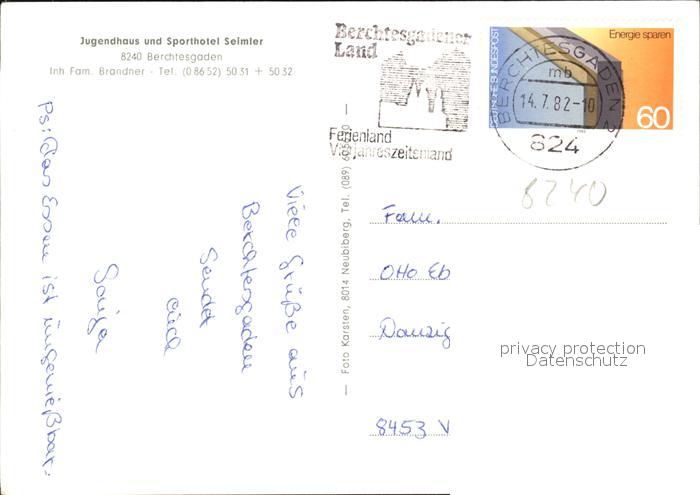 Jugendhaus und Sporthotel Seimler
8240 Berchtesgaden
Inh. Fam. Brandner - Tel. (0 86 52) 50 31 + 50 32
Berchtesgadener
Land
Ferienland
Vierjahreszeitenland
BERCHTESGADEN 2
mb
14.7.82-10
824
DEUTSCHE BUNDESPOST
Energie sparen
60
8240
Viele Grüße aus
Berchtesgaden
Sendet
euch
Sonja
Ps: Das Essen ist ungenießbar.
— Foto Karsten, 8014 Neubiberg, Tel. (089) 605 —
Fam.
Otto Eb
Danzig
8453 V
privacy protection
Datenschutz